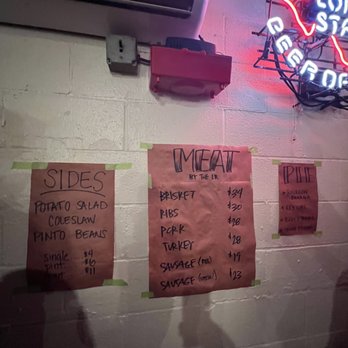 SIDES
POTATO SALAD
COLESLAW
PINTO BEANS
single $4
pint $6
$11
MEAT
BY THE LB
BRISKET $34
RIBS $30
PORK $28
TURKEY $28
SAUSAGE $19
SAUSAGE $23
PIE
STA
BEER OF